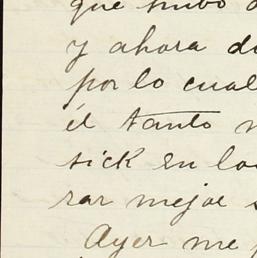 que hubo
y ahora
por lo cual
él tanto
sick en
rar mejor
Ayer me